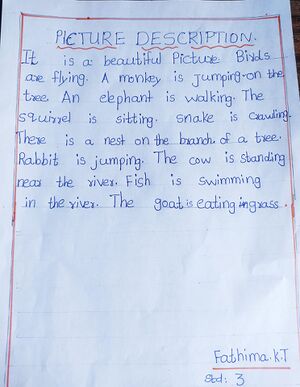 PICTURE DESCRIPTION.
It is a beautiful Picture. Birds
are flying. A monkey is jumping on the
tree. An elephant is walking. The
squirrel is sitting. snake is crawling.
There is a nest on the branch of a tree.
Rabbit is jumping. The cow is standing
near the river. Fish is swimming
in the river. The goat is eating in grass.
Fathima.K.T
Std: 3